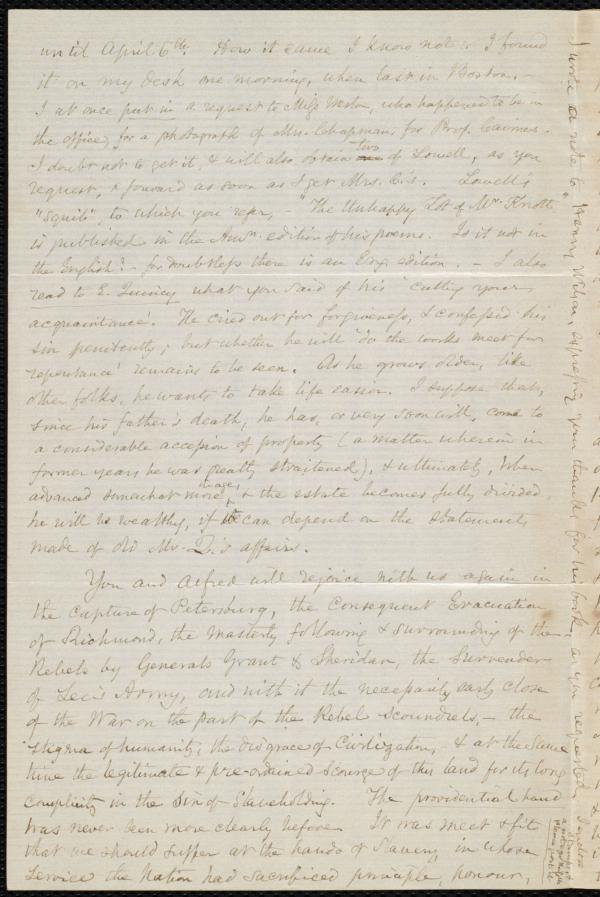 until April 6th. How it came I know not: I found
it on my desk one morning, when last in Boston. –
I at once put in a request to Miss Weston, who happened to be in
the office, for a photograph of Mrs. Chapman, for Prof. Cairnes. –
I doubt not to get it, & will also obtain two of Lowell, as you
request, & forward as soon as I get Mrs. C's. Lowell's
"squib", to which you refer, – "The Unhappy Lot of Mr. Knott"
is published in the Amn. edition of his poems. Is it not in
the English? – for doubtless there is an Eng. edition. – I also
read to E. Quincy what you said of his 'cutting your
acquaintance'. He cried out for forgiveness, & confessed his
sin penitently; but whether he will 'do the works meet for
repentance' remains to be seen. As he grows older, like
other folks, he wants to take life easier. I suppose that,
since his father's death, he has, or very soon will, come to
a considerable accession of property (a matter wherein in
former years he was greatly straitened), & ultimately, when
advanced somewhat more in age, & the estate becomes fully divided,
he will be wealthy, if we can depend on the statements
made of old Mr. Q.'s affairs.
You and Alfred will rejoice with us again in
the capture of Petersburg, the consequent Evacuation
of Richmond, the masterly following & surrounding of the
Rebels by Generals Grant & Sheridan, the Surrender
of Lee's Army, and with it the necessarily early close
of the War on the part of the Rebel Scoundrels, – the
stigma of humanity, the disgrace of Civilization, & at the same
time the legitimate & pre-ordained scourge of this land for its long
complicity in the Sin of Slaveholding. The providential hand
was never seen more clearly before. It was meet & fit
that we should suffer at the hands of Slavery, in whose
service the Nation had sacrificed principle, honour,
I wrote a note to Henry Wilson, expressing your thanks for his book, as you requested. I enclose